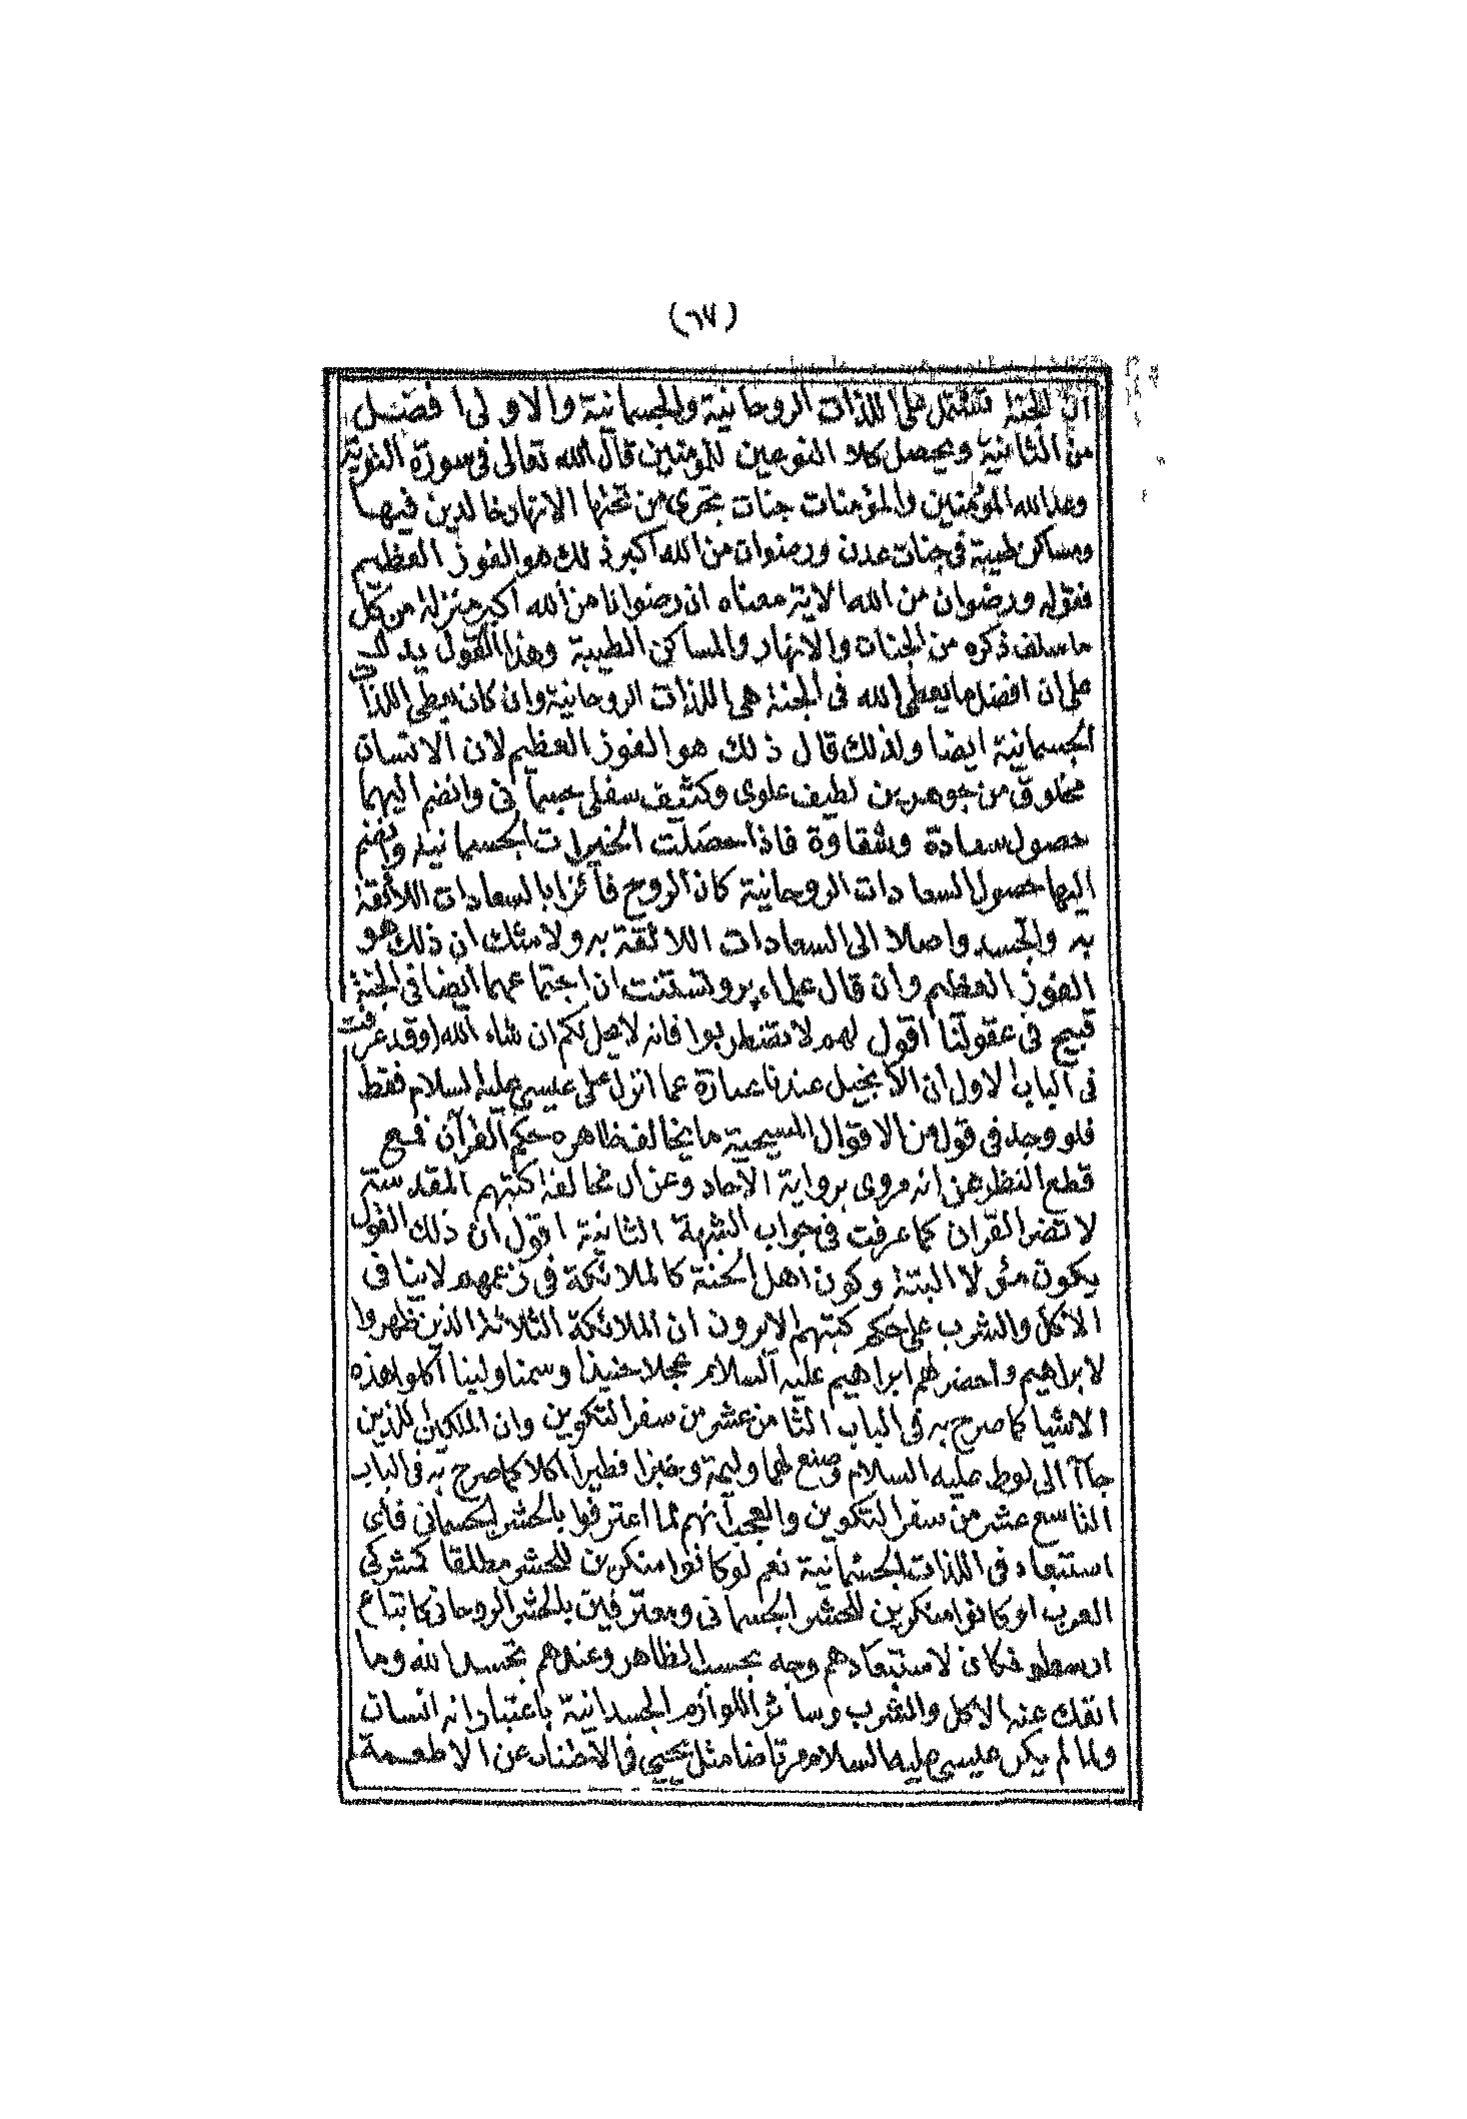 (٦٧)
ان الجنة تشتمل على اللذات الروحانية والجسمانية والاولى افضل
من الثانية ويحصل كلا النوعين للمؤمنين قال الله تعالى فى سورة التوبة
وعد الله المؤمنين والمؤمنات جنات تجرى من تحتها الانهار خالدين فيها
ومساكن طيبة فى جنات عدن ورضوان من الله اكبر ذلك هو الفوز العظيم
فقوله ورضوان من الله الاية معناه ان رضوانا من الله اكبر منزلة من كل
ما سلف ذكره من الجنات والانهار والمساكن الطيبة وهذا القول يدل
على ان افضل ما يعطى الله فى الجنة هى اللذات الروحانية وان كان يعطى اللذات
الجسمانية ايضا ولذلك قال ذلك هو الفوز العظيم لان الانسان
مخلوق من جوهرين لطيف علوى وكثيف سفلى جسمانى وانضم اليهما
حصول سعادة وشقاوة فاذا حصلت الخيرات الجسمانية وانضم
اليها حصول السعادات الروحانية كان الروح فائزا بالسعادات اللائقة
به والجسد واصلا الى السعادات اللائقة به ولا شك ان ذلك هو
الفوز العظيم وان قال علماء پروتستنت ان اجتماعهما ايضا فى الجنة
قبيح فى عقولنا اقول لهم لا تضطربوا فانه لا يحصل لكم ان شاء الله (وقد عرفت
فى الباب الاول ان الانجيل عندنا عبارة عما انزل على عيسى عليه السلام فقط
فلو وجد فى قول من الاقوال المسيحية ما يخالف ظاهره حكم القرآن فمع
قطع النظر عن انه مروى برواية الآحاد وعن ان مخالفة كتبهم المقدسة
لا تضر القران كما عرفت فى جواب الشبهة الثانية اقول ان ذلك القول
يكون مؤولا البتة وكون اهل الجنة كالملائكة فى زعمهم لا ينافى
الاكل والشرب على حكم كتبهم الا يرون ان الملائكة الثلاثة الذين ظهروا
لابراهيم واحضر لهم ابراهيم عليه السلام عجلا حنيذا وسمنا ولبنا اكلوا هذه
الاشيا كما صرح به فى الباب الثامن عشر من سفر التكوين وان الملكين اللذين
جاآ الى لوط عليه السلام وصنع لهما وليمة وخبزا فطيرا اكلا كما صرح به فى الباب
التاسع عشر من سفر التكوين والعجب انهم لما اعترفوا بالحشر الجسمانى فأى
استبعاد فى اللذات الجسمانية نعم لو كانوا منكرين للحشر مطلقا كمشركى
العرب او كانوا منكرين للحشر الجسمانى ومعترفين بالحشر الروحانى كاتباع
ارسطو فكان لاستبعادهم وجه بحسب الظاهر وعندهم تجسد الله وما
انفك عنه الاكل والشرب وسائر اللوازم الجسدانية باعتبار انه انسان
ولما لم يكن عيسى عليه السلام مرتاضا مثل يحيى فى الاجتناب عن الاطعمة